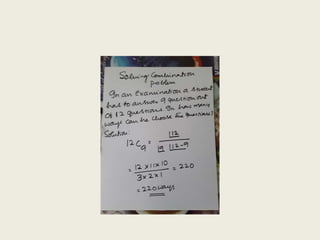 Solving Combination
problem
In an Examination a student
has to answer 9 question out
of 12 questions. In how many
ways can he choose the questions?
Solution:
12 C₉ = |12 / |9 |12-9
= 12 x 11 x 10 / 3 x 2 x 1 = 220
= 220 ways